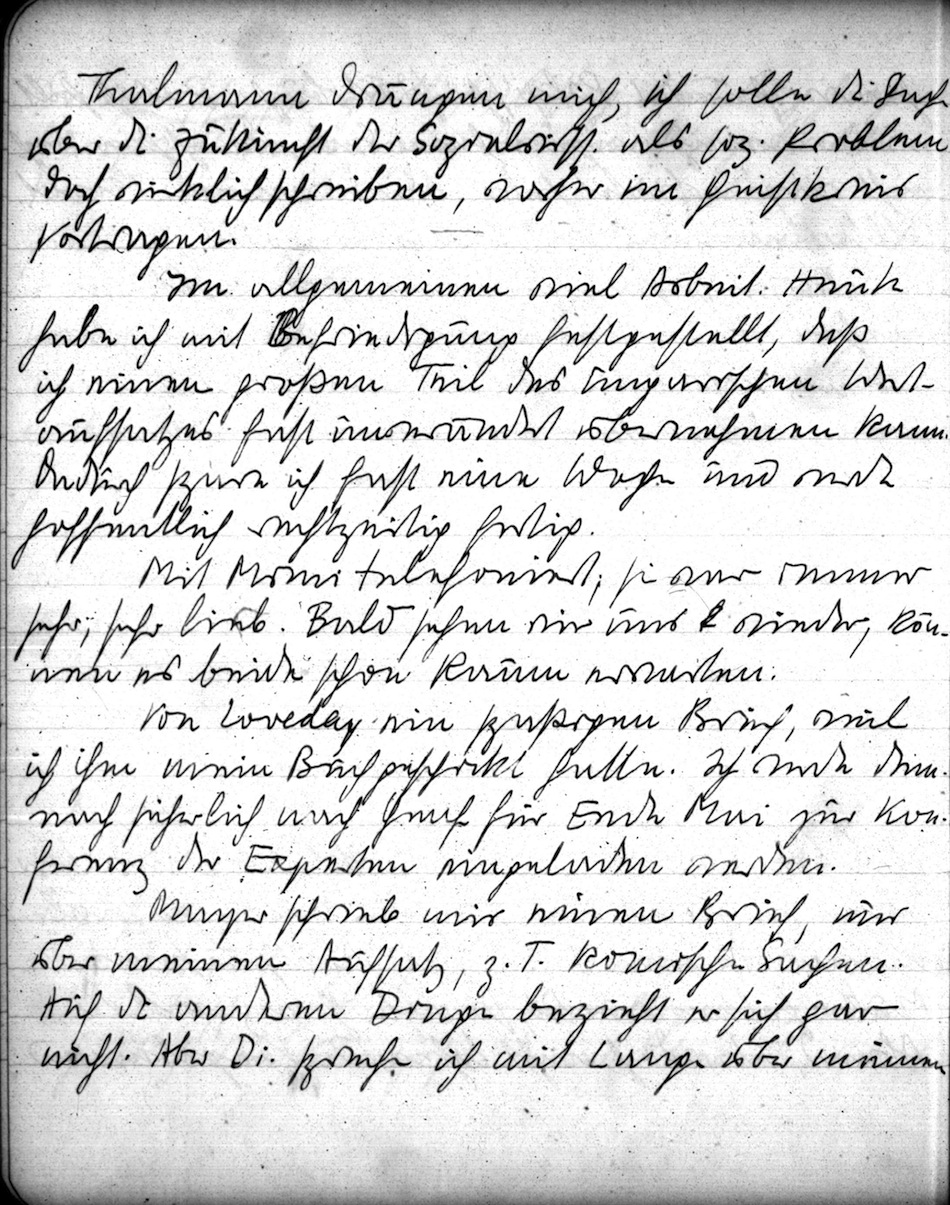 Thalmann drängen mich, ich solle die Sache
über die Zukunft der Sozialwiss. als soz. Problem
doch wirklich schreiben, vorher im Geistkreis
vortragen.
Im allgemeinen viel Arbeit. Heute
habe ich mit Befriedigung festgestellt, daß
ich einen großen Teil des ungarischen Wert-
aufsatzes fast unverändert übernehmen kann.
Dadurch spare ich fast eine Woche und werde
hoffentlich rechtzeitig fertig.
Mit Mimi telefoniert; sie war immer
sehr, sehr lieb. Bald sehen wir uns wieder, kön-
nen es beide schon kaum erwarten.
Von Loveday ein spaßiger Brief, weil
ich ihm mein Buch geschickt hatte. Ich werde dem-
nach sicherlich nach Genf für Ende Mai zur Kon-
ferenz der Experten eingeladen werden.
Mayer schrieb mir einen Brief, nur
über meinen Aufsatz, z. T. komische Sachen.
Auf die anderen Dinge bezieht er sich gar
nicht. Aber Di. spreche ich mit Lange über meinen